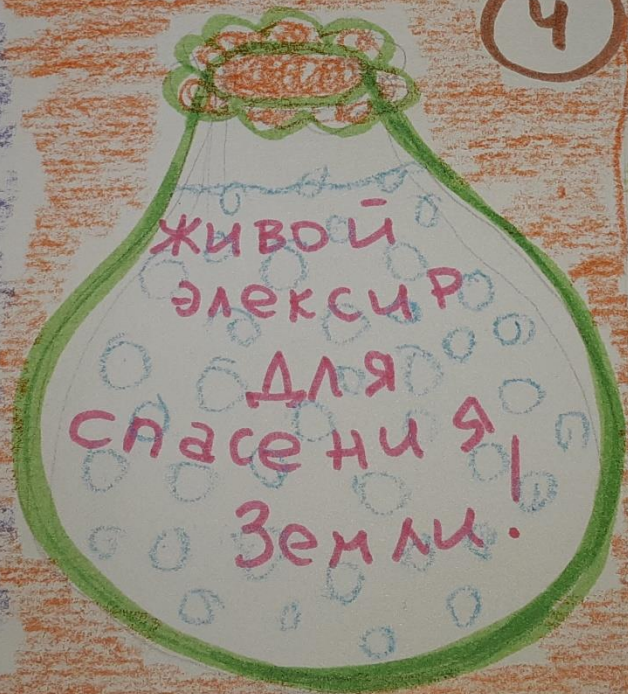 4
живой
элексир
для
спасения
Земли!